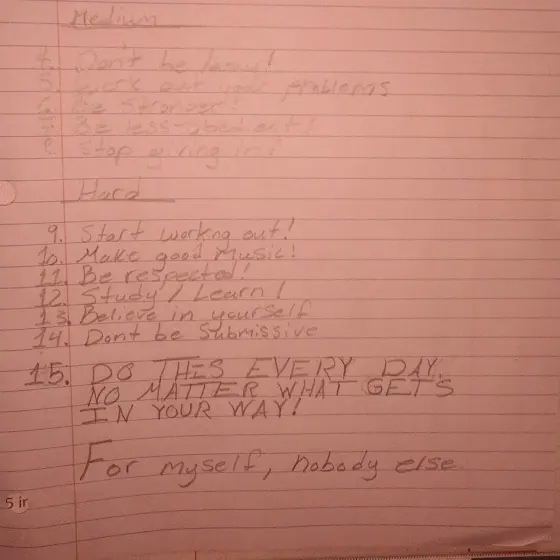 Medium
4. Don't be lazy!
5. Work out your problems
6. Be Stronger!
7. Be less-obedient!
8. Stop giving in!
Hard
9. Start working out!
10. Make good music!
11. Be respected!
12. Study / Learn!
13. Believe in yourself
14. Dont be Submissive
15. DO THIS EVERY DAY,
NO MATTER WHAT GETS
IN YOUR WAY!
For myself, nobody else
5 in